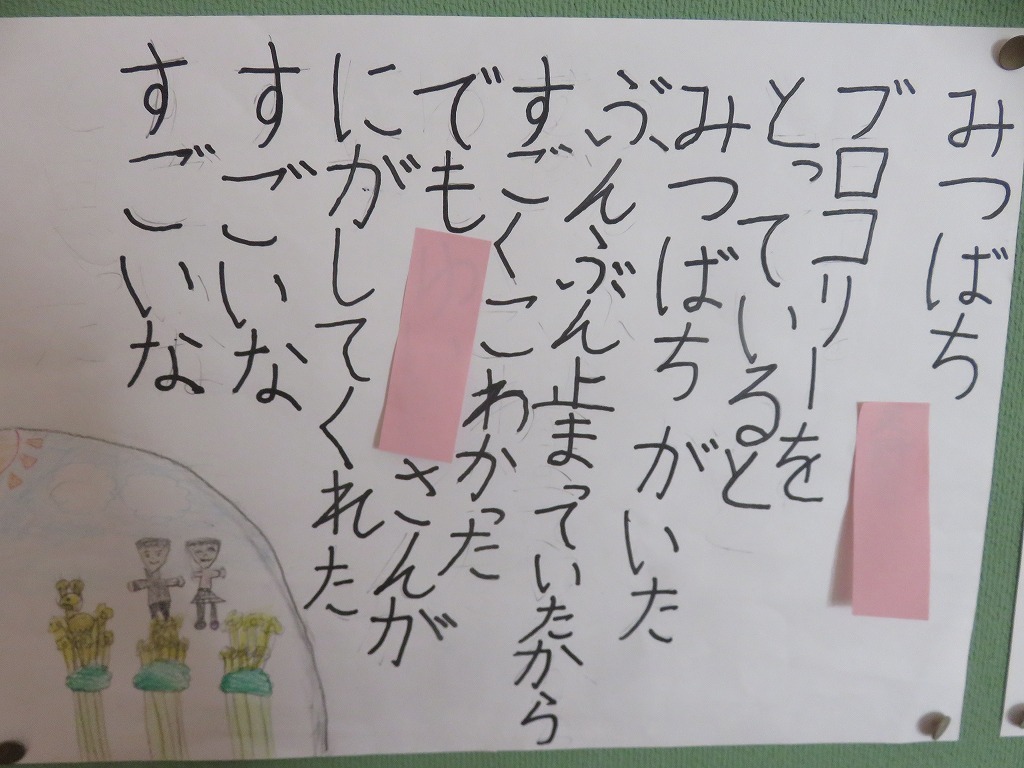 みつばち
ブロコリーを
とっていると
みつばちがいた
ぶんぶん止まっていたから
すごくこわかった
でも
さんが
にがしてくれた
すごいな
すごいな